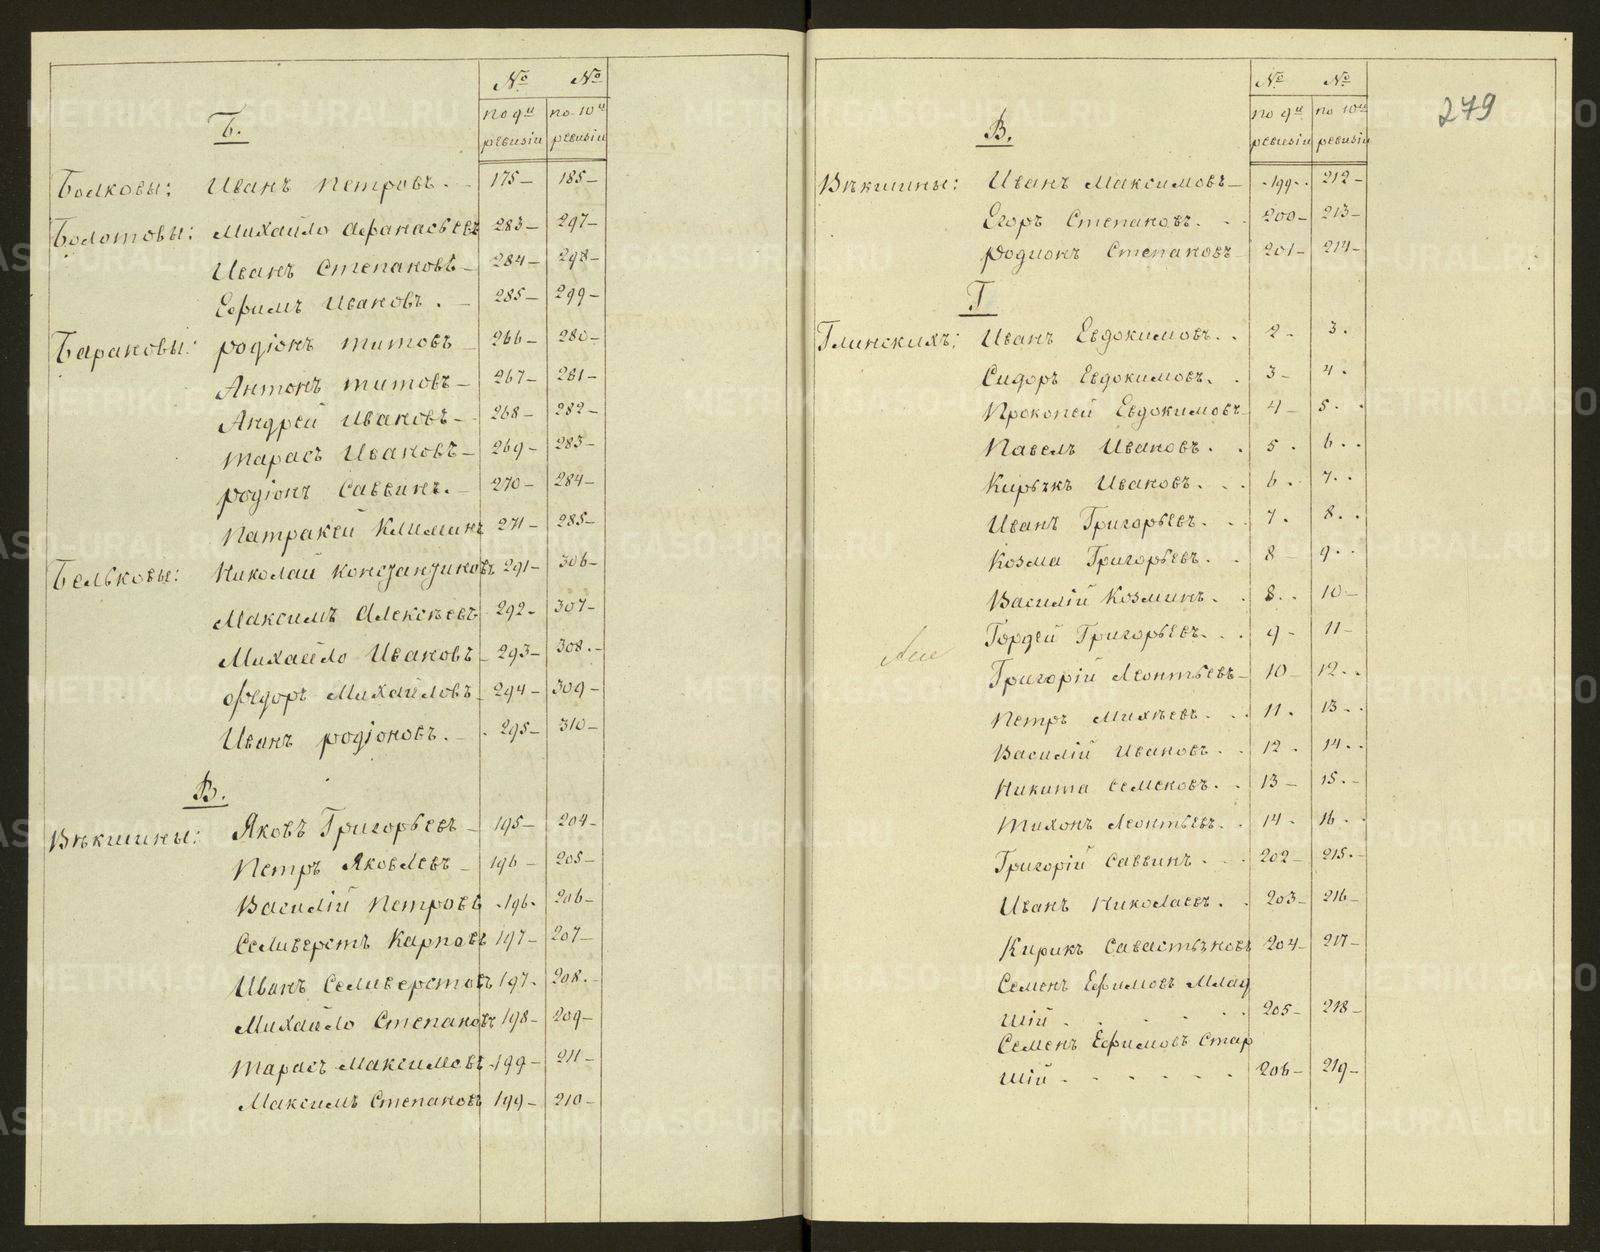 № №
по 9й ревизіи по 10й ревизіи
Б.
Болковы: Иванъ Петровъ. 175 – 185 –
Болотовы: Михайло Афанасьевъ 283 – 297 –
Иванъ Степановъ – 284 – 298 –
Ефимъ Ивановъ. – 285 – 299 –
Барановы: Родіонъ Титовъ 266 – 280 –
Антонъ Титовъ – 267 – 281 –
Андрей Ивановъ – 268 – 282 –
Тарасъ Ивановъ – 269 – 283 –
Родіонъ Саввинъ. – 270 – 284 –
Патракей Климинъ 271 – 285 –
Бельковы: Николай Константиновъ 291 – 306 –
Максимъ Алексѣевъ 292 – 307 –
Михайло Ивановъ – 293 – 308. –
Федоръ Михайловъ – 294 – 309 –
Иванъ Родіоновъ. – 295 – 310 –
В.
Вѣкшины: Яковъ Григорьевъ – 195 – 204 –
Петръ Яковлевъ – 196 – 205 –
Василій Петровъ 196. 206 –
Селиверстъ Карповъ 197 – 207 –
Иванъ Селиверстовъ 197. 208. –
Михайло Степановъ 198 – 209 –
Тарасъ Максимовъ 199 – 211 –
Максимъ Степановъ 199 – 210 –
279
№ №
по 9й ревизіи по 10й ревизіи
В.
Вѣкшины: Иванъ Максимовъ – 199 . . 212 –
Егоръ Степановъ. . . 200 – 213 –
Родионъ Степановъ 201 – 214 –
Г
Глинскихъ: Иванъ Евдокимовъ. . 2 – 3.
Сидоръ Евдокимовъ. . 3 – 4.
Прокопей Евдокимовъ 4 – 5. .
Павелъ Ивановъ. . 5. 6. .
Кирьѣкъ Ивановъ. . . 6. 7. .
Иванъ Григорьевъ. . . 7. 8. .
Козма Григорьевъ. . 8 – 9. .
Василій Козминъ. . 8. . 10 –
Гордей Григорьевъ. . . 9 – 11 –
Григорій Леонтьевъ – 10 – 12. .
Петръ Михѣевъ. . . 11. 13 – .
Василій Ивановъ. . 12. 14. .
Никита Семеновъ. . 13 – 15. –
Тихонъ Леонтьевъ. . 14. 16. .
Григорій Саввинъ. . 202 – 215. –
Иванъ Николаевъ. . 203 – 216 –
Кирикъ Савастьяновъ 204 – 217 –
Семенъ Ефимовъ Млад
шій . . . . . . 205 – 218 –
Семенъ Ефимовъ Стар
шій . . . . . . 206 – 219 –
METRIKI.GASO-URAL.RU